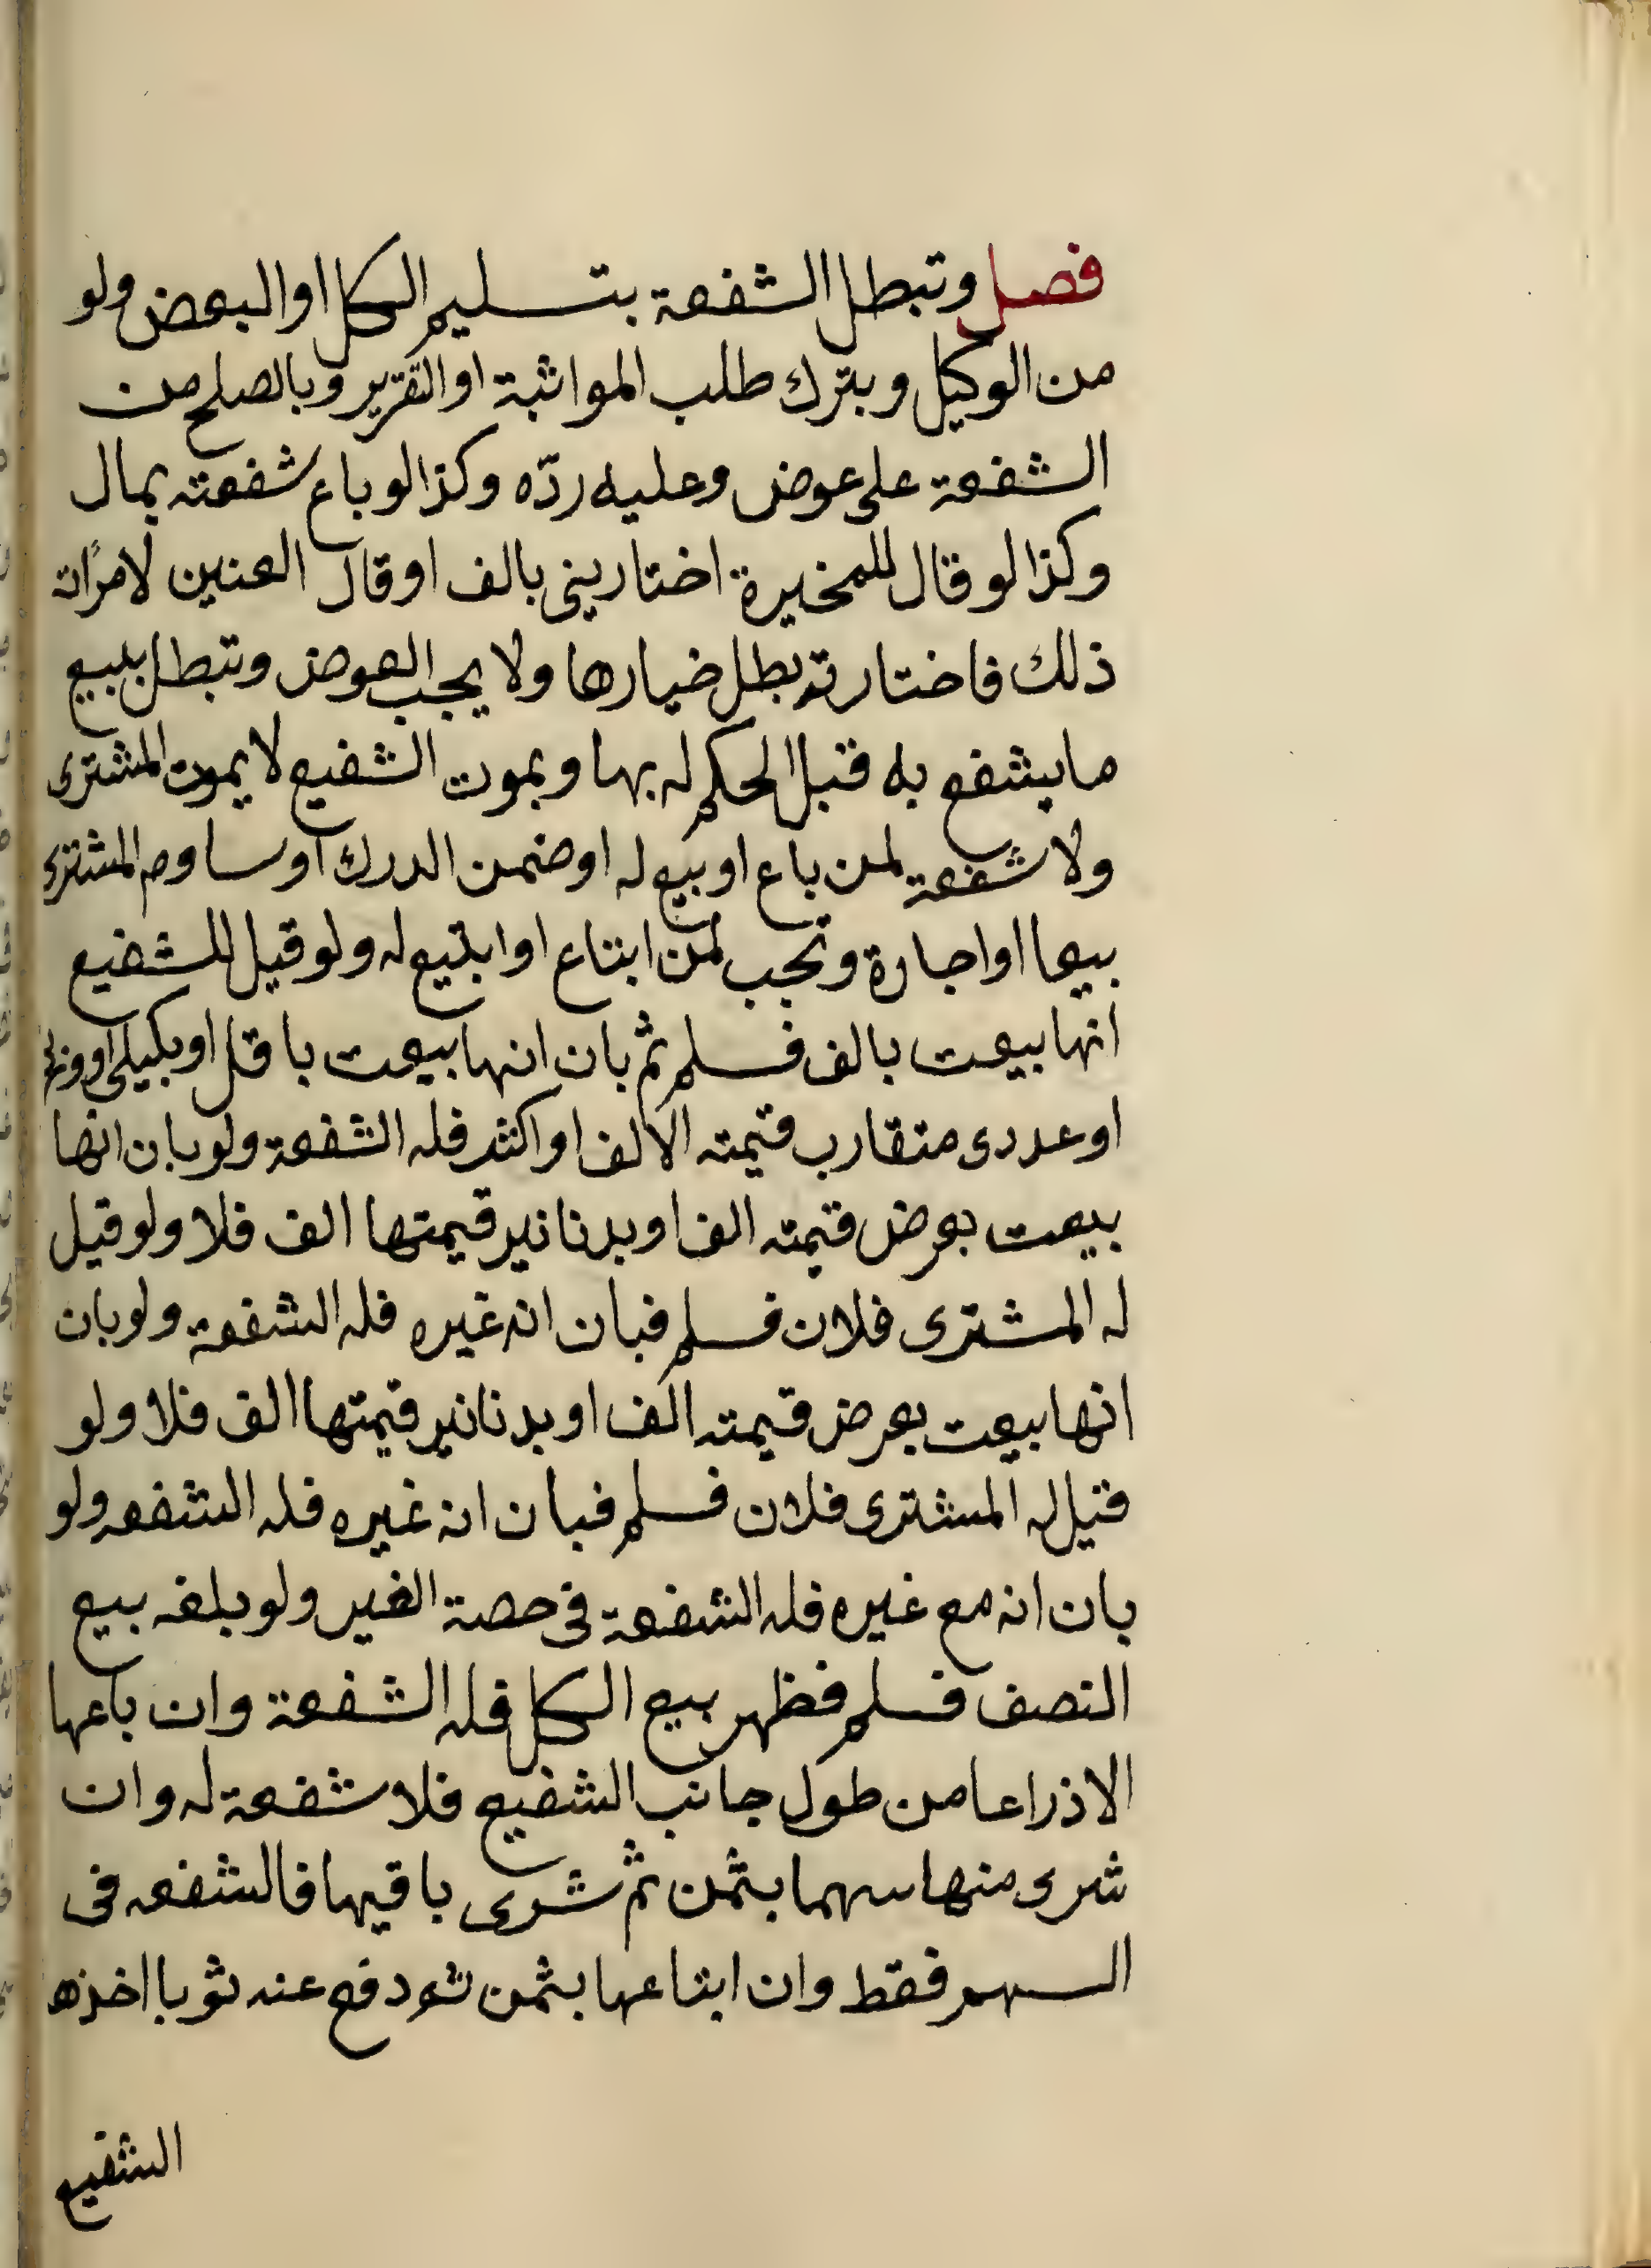 فصل وتبطل الشفعة بتسليم الكل او البعض ولو
من الوكيل وبترك طلب المواثبة او التقرير وبالصلح من
الشفعة على عوض وعليه ردّه وكذا لو باع شفعته بمال
وكذا لو قال للمخيرة اختاريني بالف او قال العنين لامرأته
ذلك فاختارته بطل خيارها ولا يجب العوض وتبطل ببيع
ما يشفع به قبل الحكم له بها وبموت الشفيع لا بموت المشترى
ولا شفعة لمن باع او بيع له او ضمن الدرك او ساوم المشترى
بيعا او اجارة وتجب لمن ابتاع او ابتيع له ولو قيل للشفيع
انها بيعت بالف فسلم ثم بان انها بيعت باقل او بكيلى او وزنى
او عددى متقارب قيمته الالف او اكثر فله الشفعة ولو بان انها
بيعت بعرض قيمته الف او بدنانير قيمتها الف فلا ولو قيل
له المشترى فلان فسلم فبان انه غيره فله الشفعة ولو بان
انها بيعت بعرض قيمته الف او بدنانير قيمتها الف فلا ولو
قيل له المشترى فلان فسلم فبان انه غيره فله الشفعه ولو
بان انه مع غيره فله الشفعة فى حصة الغير ولو بلغه بيع
النصف فسلم فظهر بيع الكل فله الشفعة وان باعها
الا ذراعا من طول جانب الشفيع فلا شفعة له وان
شرى منها سهما بثمن ثم شرى باقيها فالشفعه فى
السهم فقط وان ابتاعها بثمن ثم دفع عنه ثوبا اخذها
الشفيع